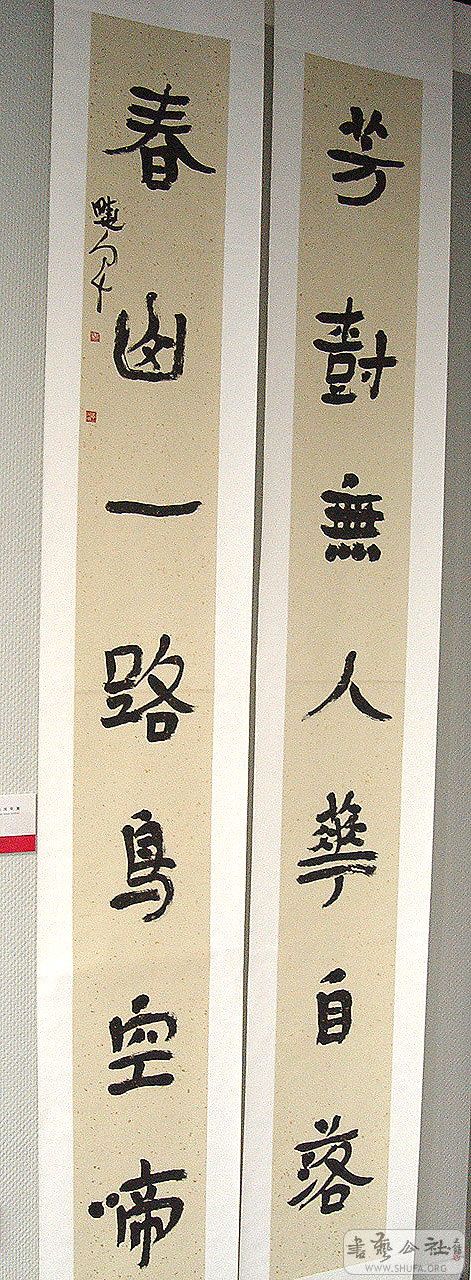 芳尌無人華自落
春山一路鳥空啼
書藝公社
WWW.SHUFA.ORG